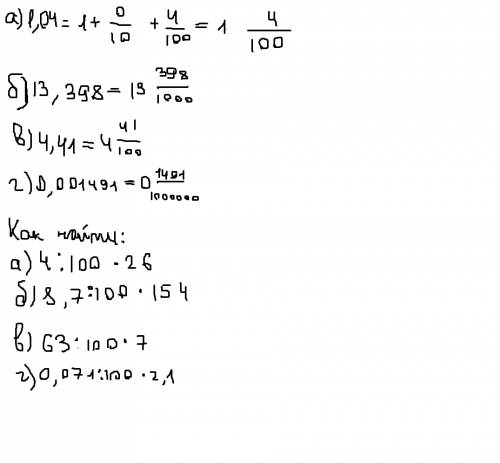 а) 1,04 = 1 + 0/10 + 4/100 = 1 4/100
б) 13, 398 = 13 398/1000
в) 4,41 = 4 41/100
г) 0,001491 = 0 1491/1000000
Как найти:
а) 4 : 100 · 26
б) 8,7 : 100 · 154
в) 63 : 100 · 7
г) 0,071 : 100 · 2,1